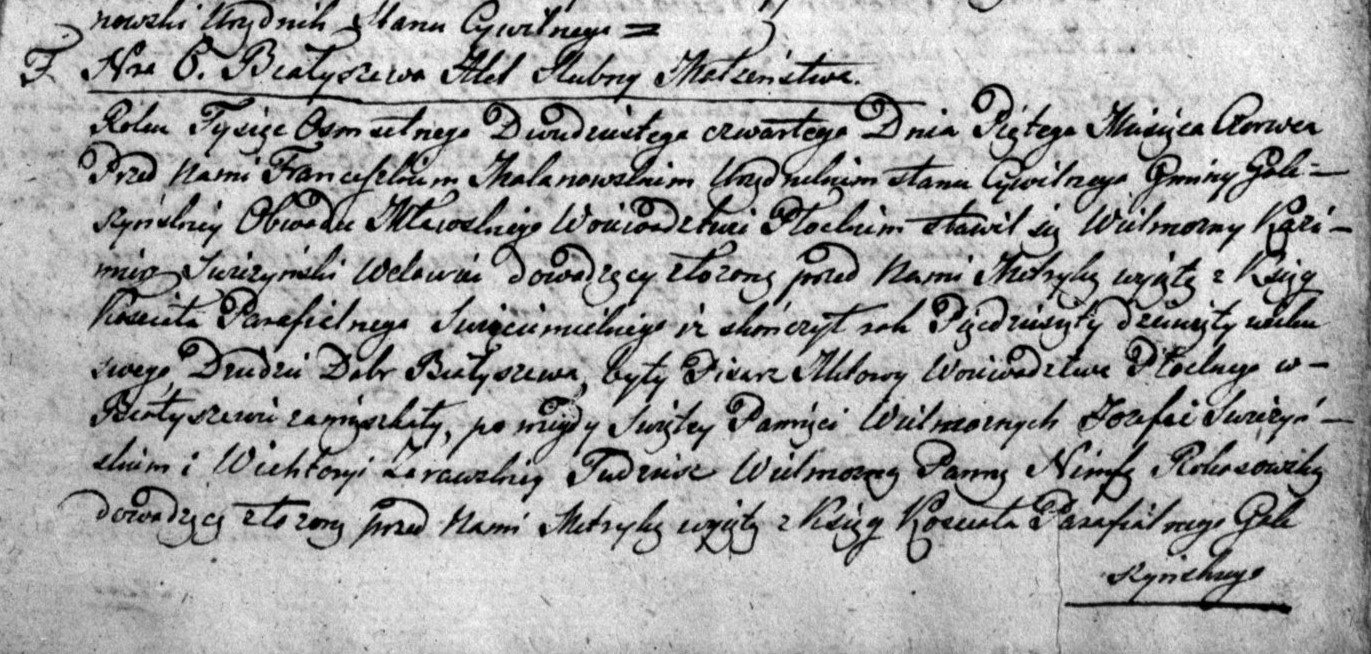 nowski Urzędnik Stanu Cywilnego =
F. Nro 6. Białyszewo Akt Slubny Małżeństwa.
Roku Tysiąc Osmsetnego Dwudziestego czwartego Dnia Piętego Miesiąca Czerwca
Przed Nami Franciszkiem Malanowskim Urzędnikiem stanu Cywilnego Gminy Gole=
szyńskiey Obwodu Mławskiego Woiewodztwie Płockim stawił się Wielmożny Kazi-
mirz Swieżyński Wdowiec dowodzący złożoną przed Nami Metryką wyiętą z Księg
Koscioła Parafielnego iż skończył rok Pięcdziesiąty dziewiąty wieku
swego, Dziedzic Dobr Białyszewa, były Pisarz Aktowy Woiewodztwa Płockiego w-
Białyszewie zamieszkały, po między Swiętey Pamięci Wielmożnych Jozefie Swieżyń-
skim i Wiktoryi Tudziesz Wielmożną Panną Nimfą Rokosowską
dowodzącą złożoną przed Nami Metryką wyiętą z Księg Koscioła Parafielnego Gole
szyńskiego